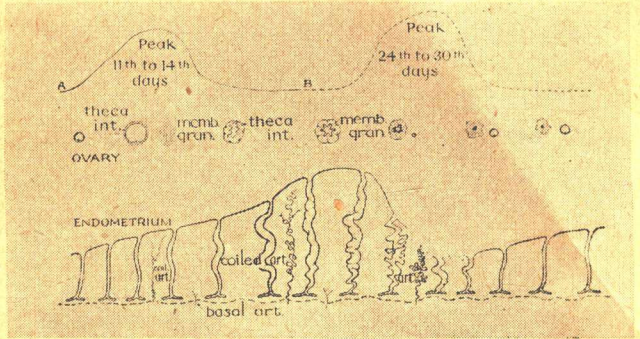 Peak
11th to 14th
days
Peak
24th to 30th
days
A
B
theca
int.
memb.
gran.
theca
int.
memb.
gran.
OVARY
ENDOMETRIUM
coil
art.
coiled art.
art.
basal art.